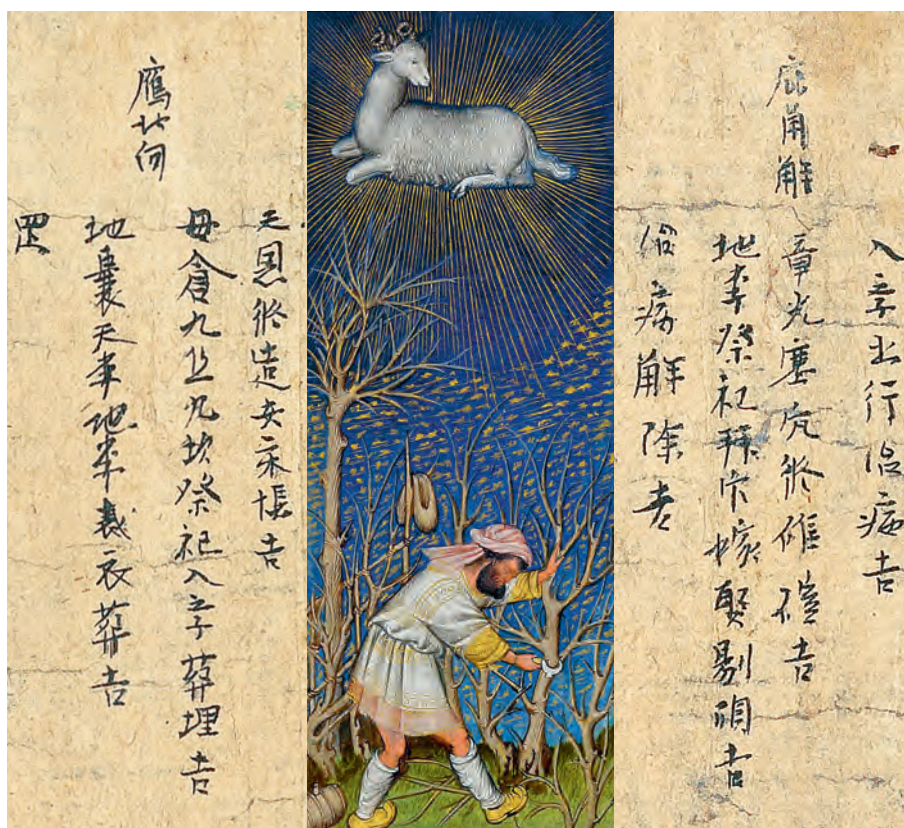 入学出行治病吉
鹿角解
章光塞穴修碓磑吉
地李祭祀拜官嫁娶剔頭吉
治病解除吉
天恩修造安床帳吉
母倉九丘九坎祭祀入学葬埋吉
鴈北向
地囊天李地李裁衣葬吉
罡